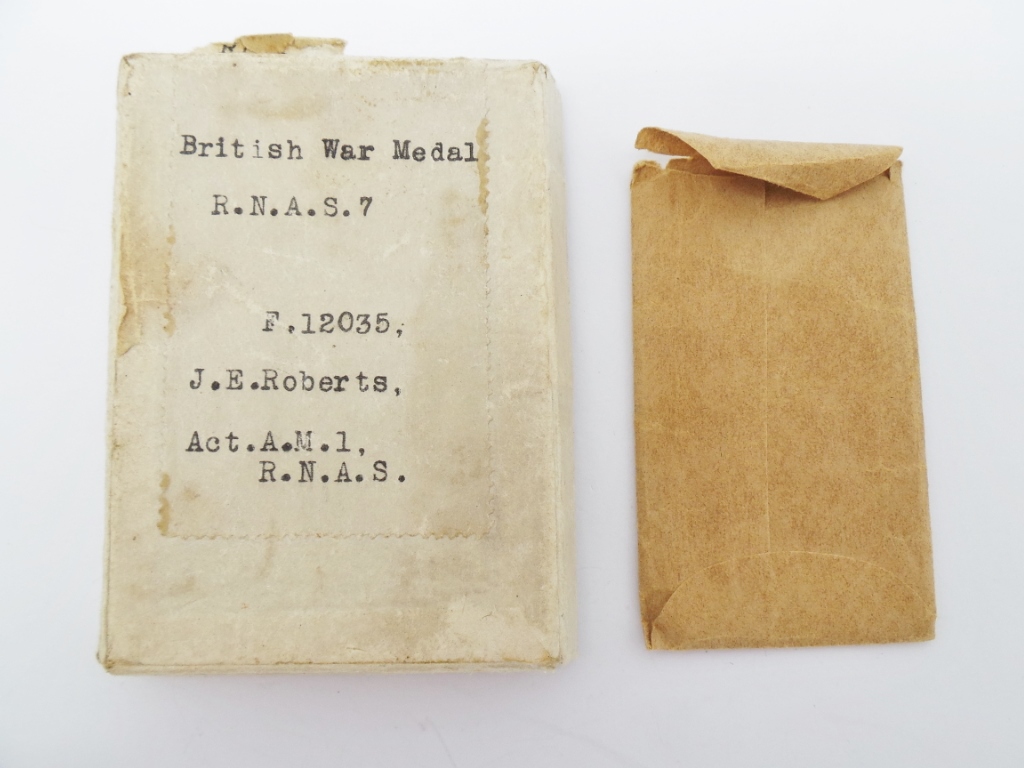 British War Medal
R.N.A.S.7
F.12035,
J.E.Roberts,
Act.A.M.1,
R.N.A.S.